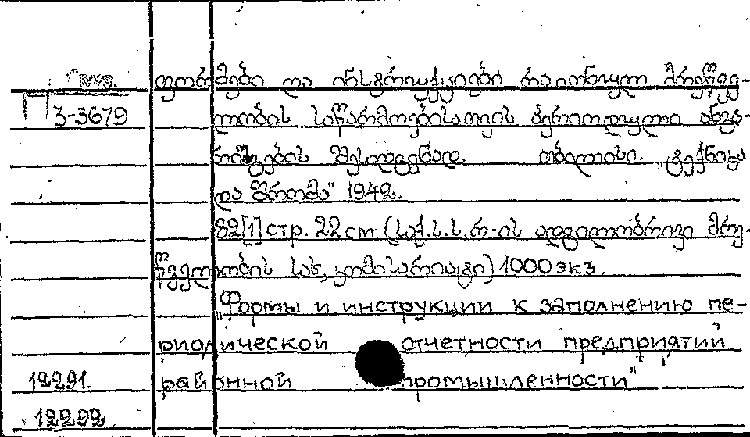 ფორმები და ინსტრუქციები რაიონული მრეწვე-
П 3-3679 ლობის საწარმოებისათვის პერიოდული ანგა-
რიშგების შესადგენად. თბილისი. „ტექნიკა
და შრომა" 1942.
82[1] стр. 22 cm (საქ.ს.ს.რ-ის ადგილობრივი მრე-
წველობის სახ. კომისარიატი) 1000 экз.
„Формы и инструкции к заполнению пе-
риодической отчетности предприятий
12291 районной промышленности"
12292